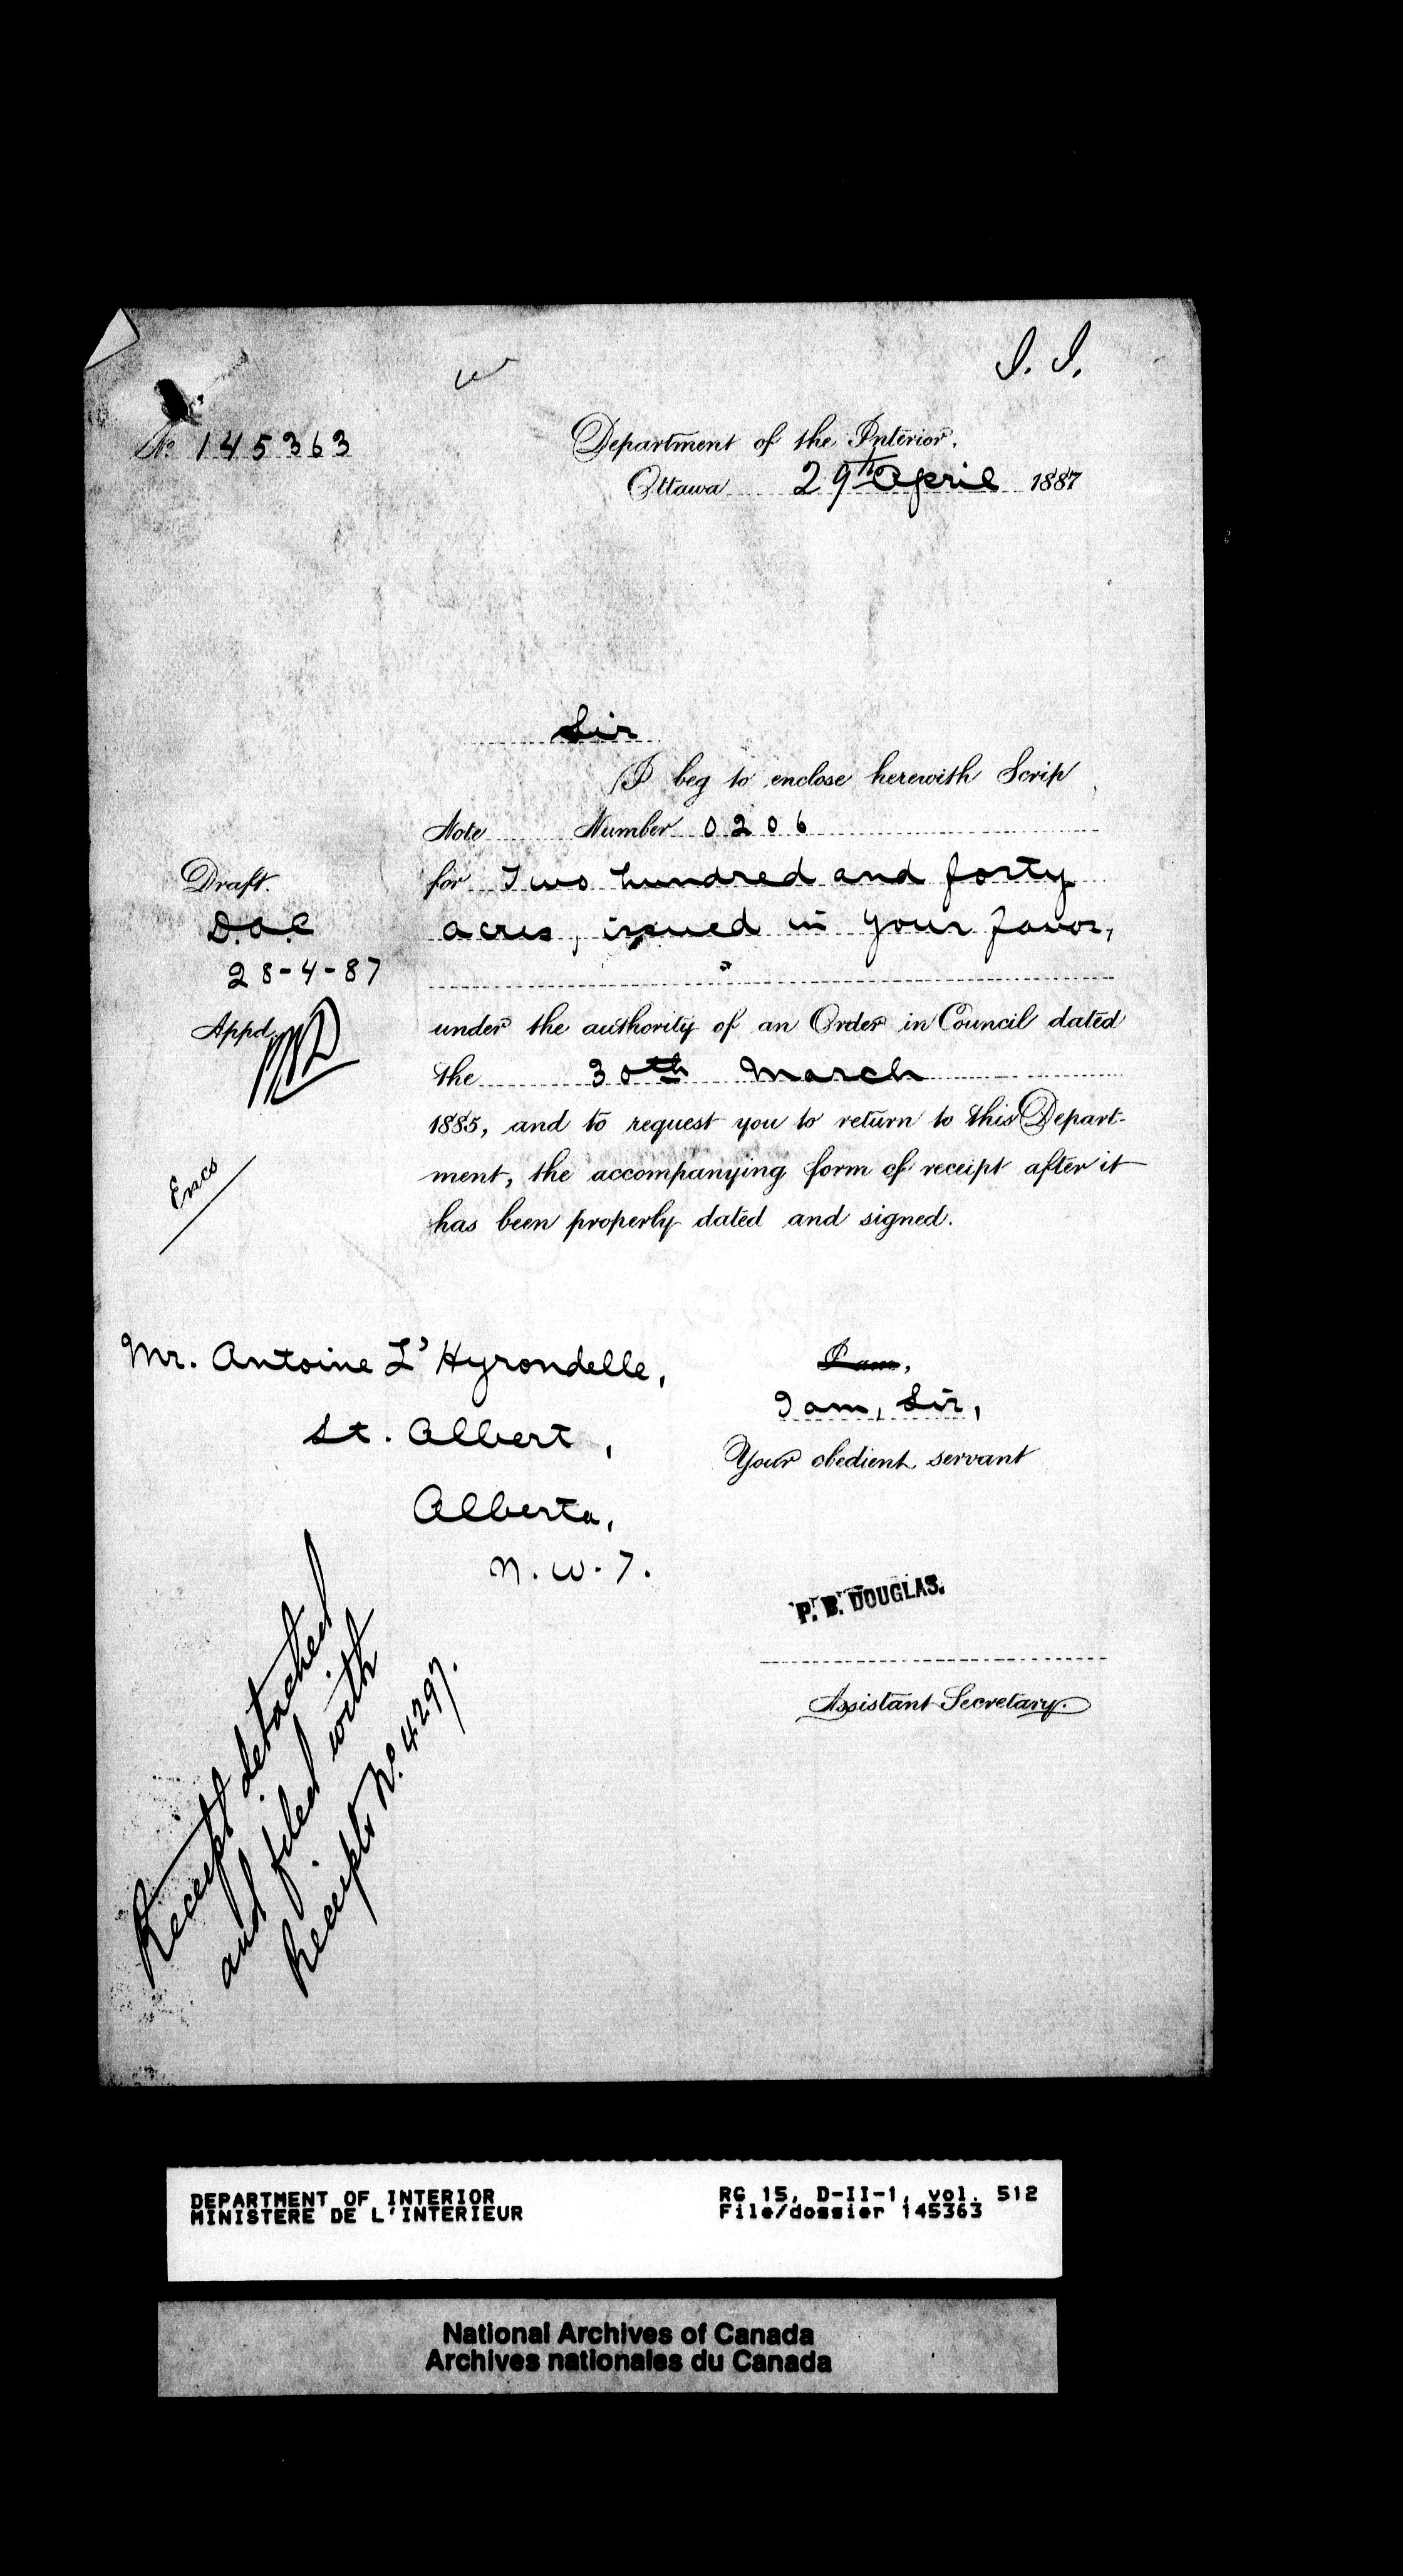 I. I.
No 145363
Department of the Interior.
Ottawa 29th April 1887
Sir
I beg to enclose herewith Scrip
Note Number 0206
for Two hundred and forty
acres, issued in your favor,
Draft.
28-4-87
Appd
Encs
under the authority of an Order in Council dated
the 30th March
1885, and to request you to return to this Depart-
ment, the accompanying form of receipt after it
has been properly dated and signed.
Mr. Antoine L'Hyrondelle,
St. Albert,
Alberta,
N.W.T.
I am,
I am, Sir,
Your obedient servant
P. B. DOUGLAS.
Assistant Secretary.
Receipt detached
and filed with
Receipts No. 4297.
DEPARTMENT OF INTERIOR
MINISTERE DE L'INTERIEUR
RG 15, D-II-1, vol. 512
File/dossier 145363
National Archives of Canada
Archives nationales du Canada